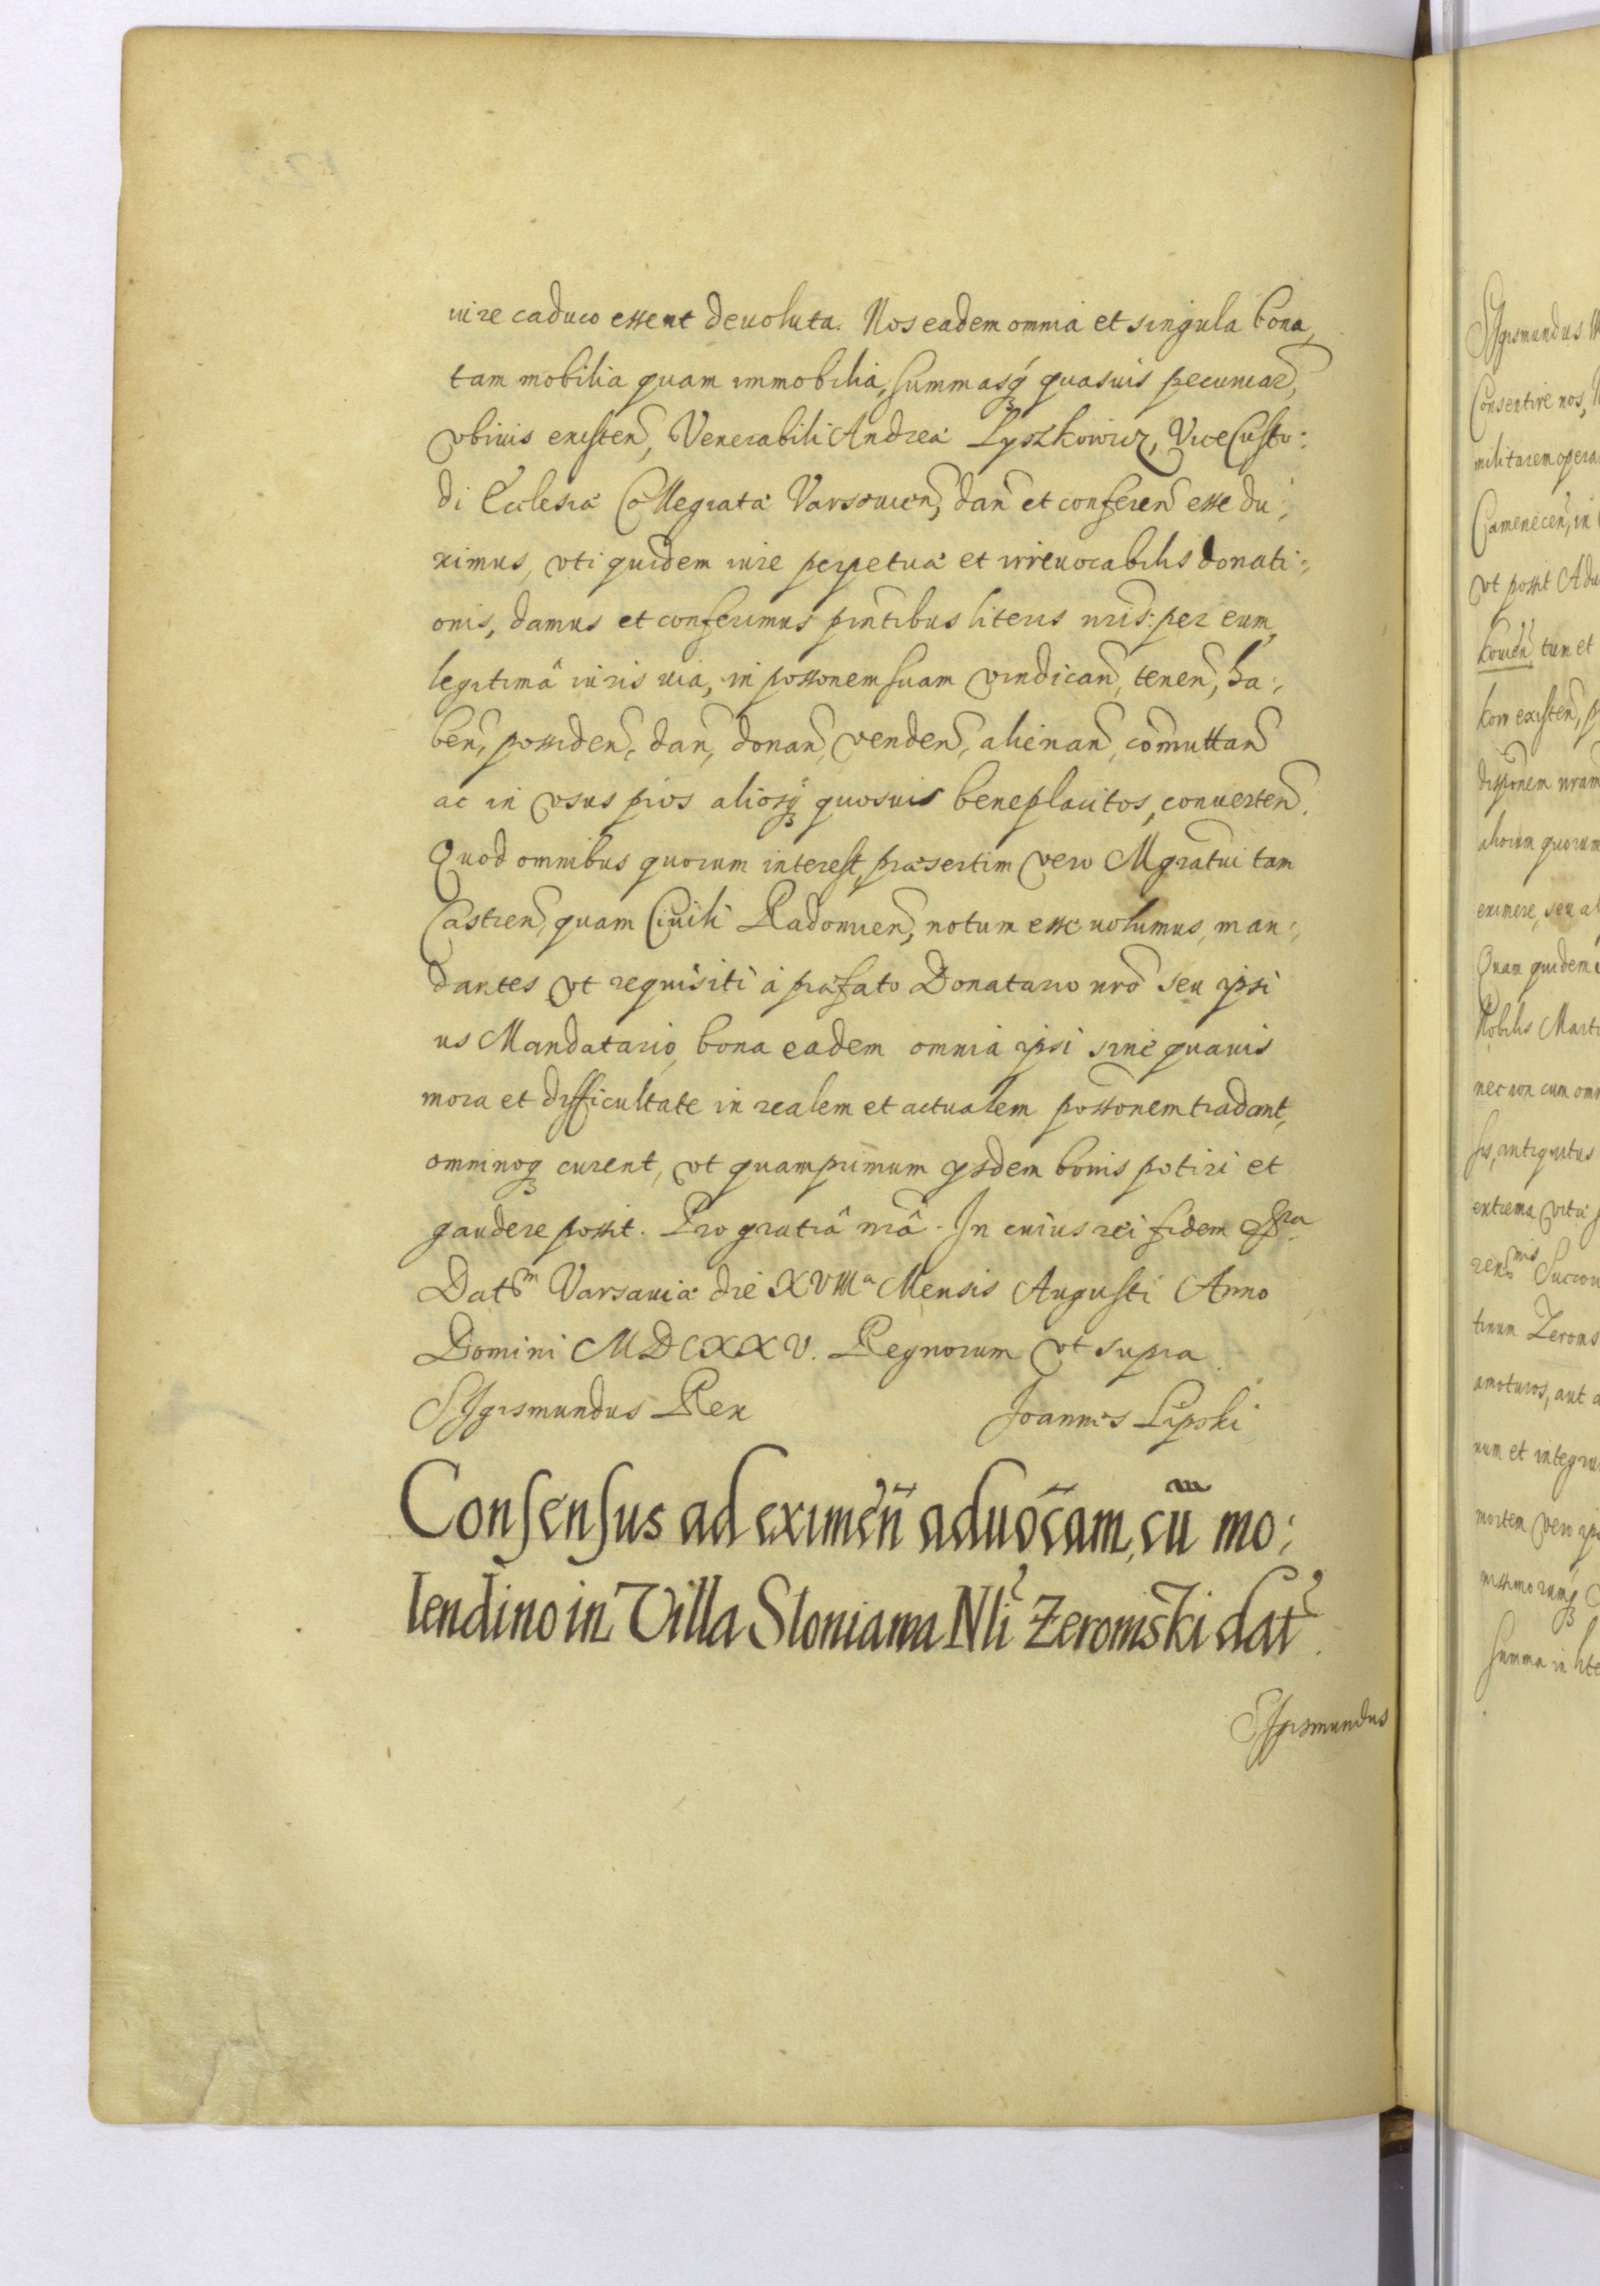 iure caduco essent deuoluta. Nos eadem omnia et singula bona,
tam mobilia quam immobilia, summasq́ꝫ quasuis pecuniar̃,
vbiuis existen̄, Venerabili Andreæ Lyszkowicz, Vice Custo:
di Ecclesiæ Collegiatæ Varsouien̄, dan̄ et conferen̄ esse du:
ximus, vti quidem iure perpetuæ et irreuocabilis donati:
onis, damus et conferimus pn̄tibus literis nr̄is: per eum,
legitimâ iuris uia, in poss̄onem suam vindican̄, tenen̄, ha:
ben̄, possiden̄, dan̄, donan̄, venden̄, alienan̄, com̄uttan̄
ac in vsus pios aliosq́ꝫ quosuis beneplacitos, conuerten̄.
Quod omnibus quorum interest, præsertim vero Mgr̄atui tam
Castren̄, quam Ciuili Radomien̄, notum esse uolumus, man:
dantes vt requisiti à præfato Donatario nr̄o seu ipsi
us Mandatario, bona eadem omnia ipsi sine quauis
mora et difficultate in realem et actualem poss̄onem tradant,
omninoqꝫ curent, vt quamprimum ysdem bonis potiri et
gaudere possit. Pro gratiâ nr̄â. In cuius rei fidem
Datm Varsauiæ die XVIIIa Mensis Augusti Anno
Domini MDCXXV. Regnorum vt supra
Sigismundus Rex Joannes Lipski
Consensus ad eximen̄ aduōcam, cū mo:
lendino in Villa Sloniawa Nli Zeromski dat̄.
Sigismundus
Sigismundus
Consentire nos,
militarem opera
Camenecen̄, in
vt possit Adu
kouien̄ tum et
kow existen̄,
disp̄onem nram
aliorum quorum
eximere, seu al
Quam quidem
Nobilis Marti
nec non cum omn
sis, antiquitus
extrema vitæ
Succou
tinum Zeroms
amoturos, aut a
num et integru
mortem vero ips
Summa in lite